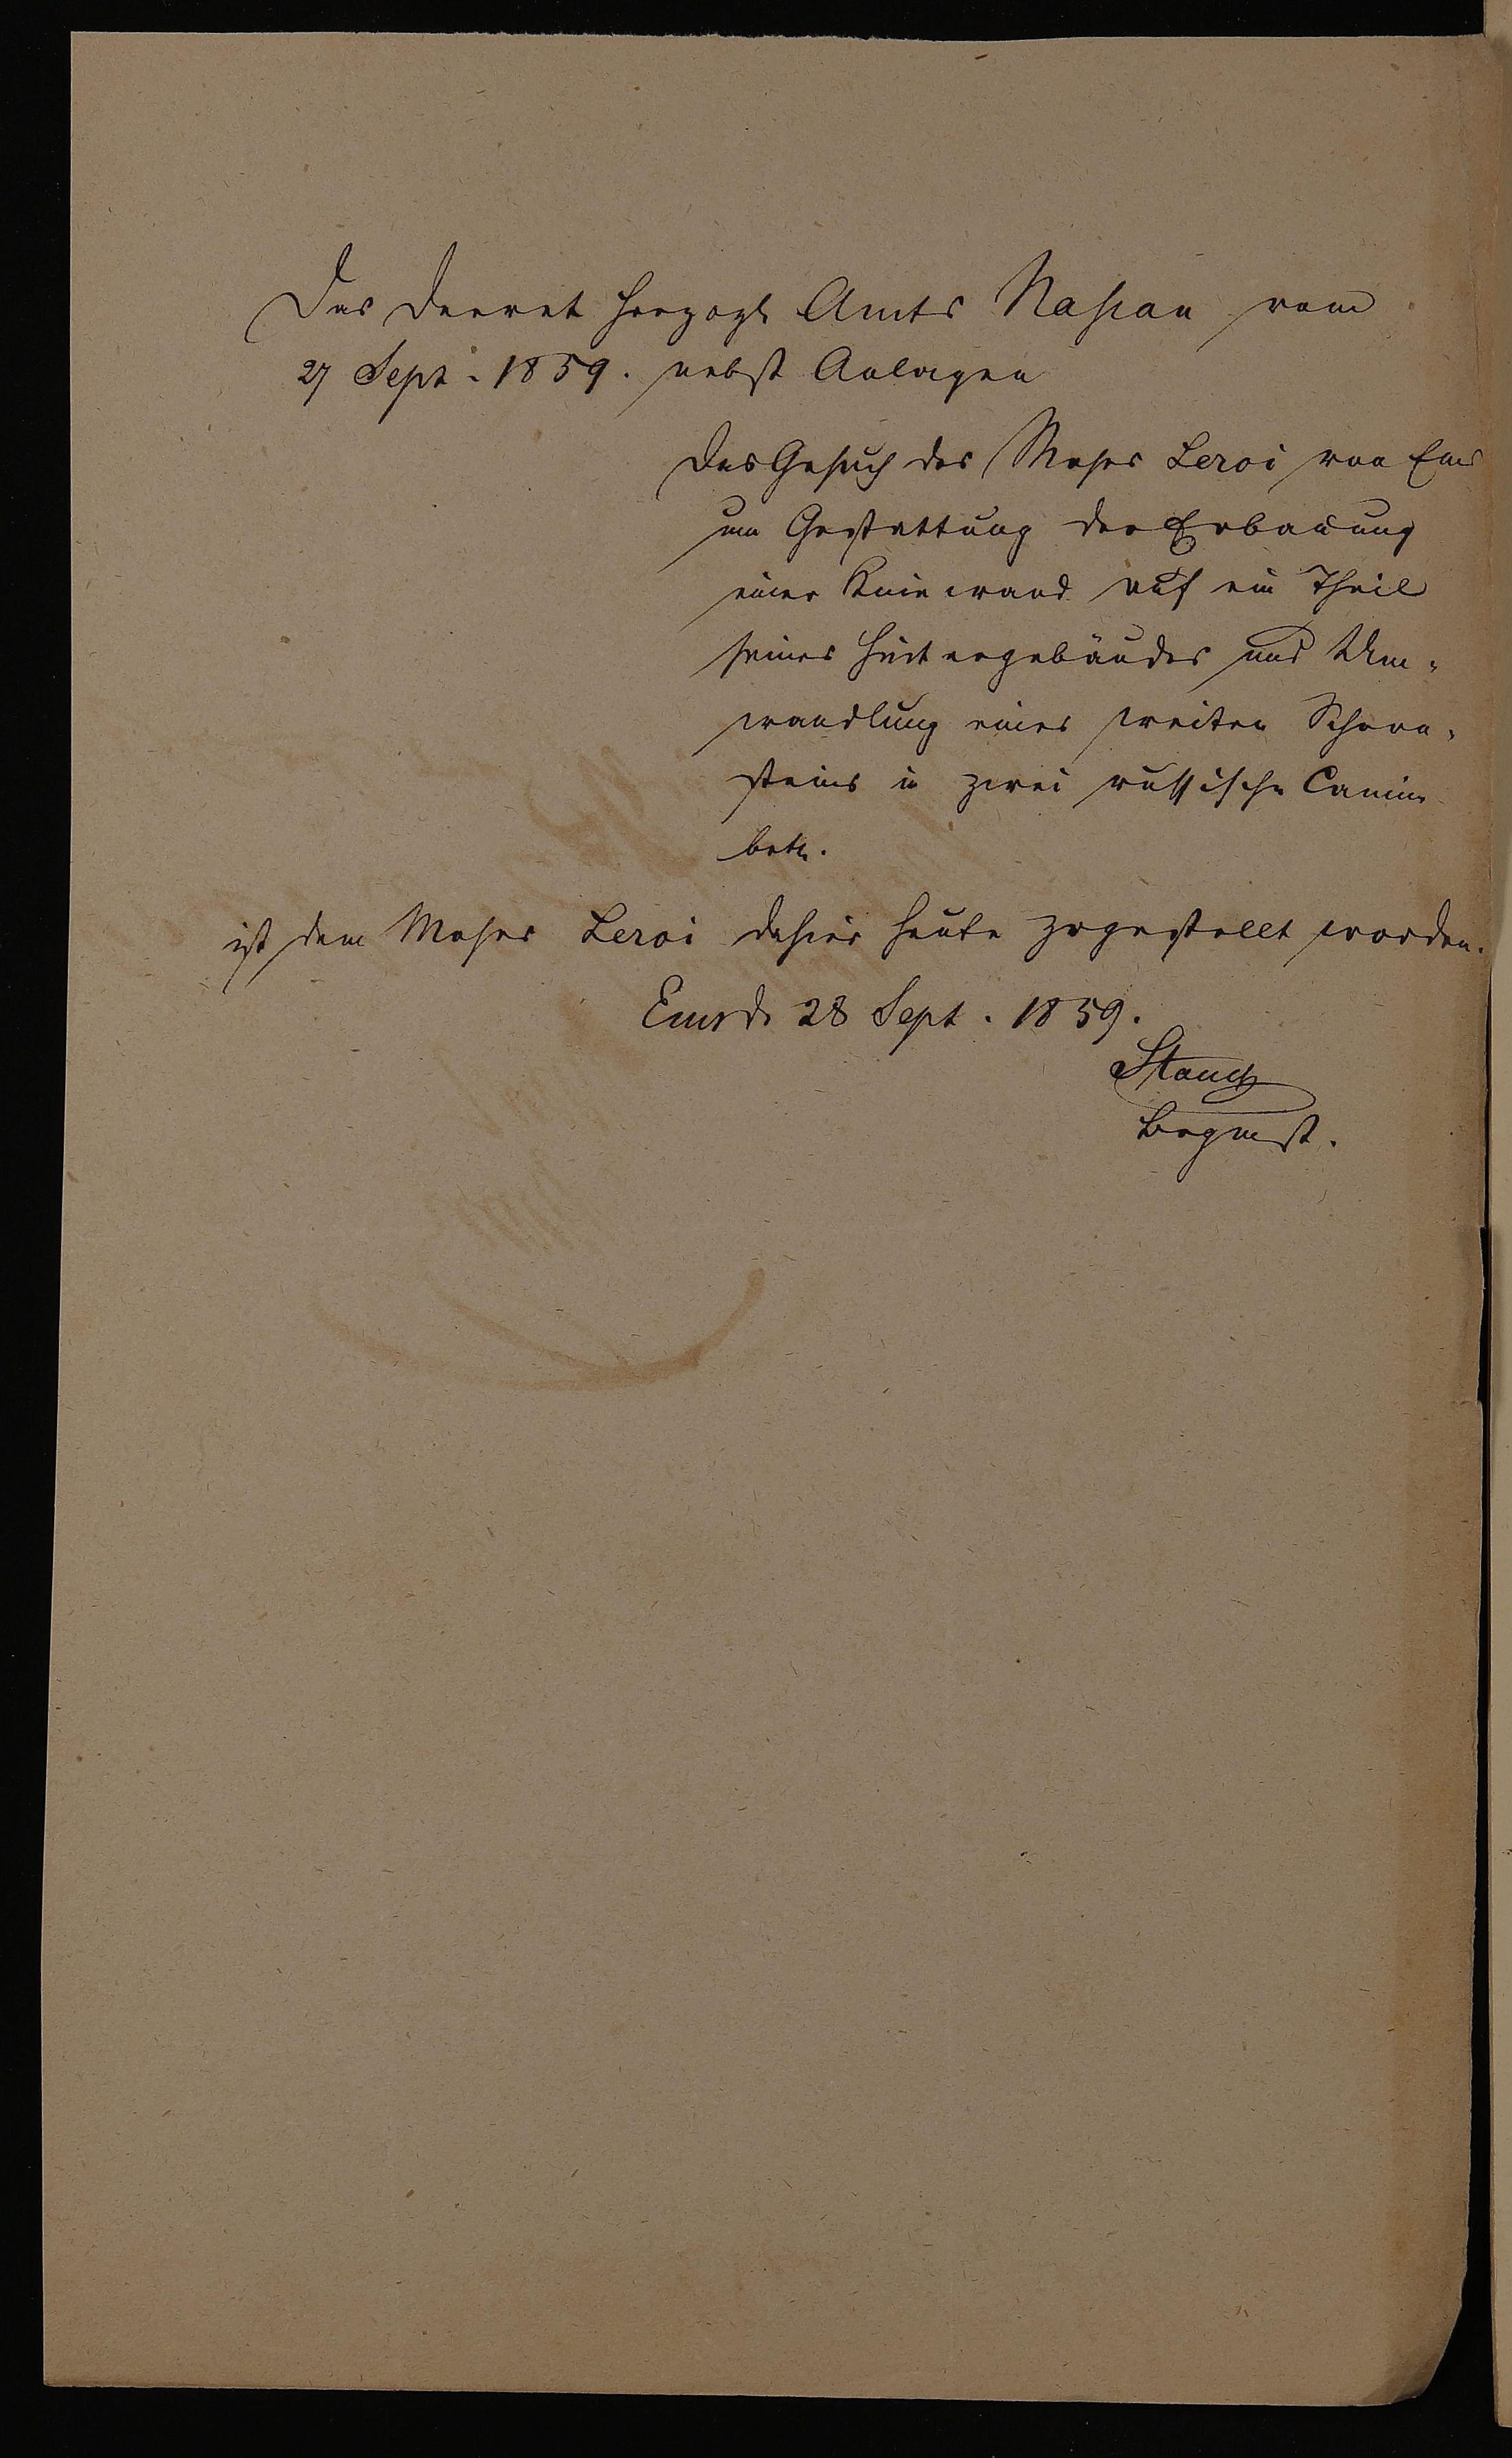 Das Decret Herzogl Amts Nassau vom
27 Sept. 1859. nebst Anlagen
Das Gesuch des Moses Leroi von Ems
um Gestattung der Erbauung
einer Kniewand auf ein Theil
seines Hintergebäudes und Um-
wandlung eines weiten Schorn-
steins in zwei russische Camine
betr.
ist dem Moses Leroi dahier heute zugestellt worden.
Ems d. 28 Sept. 1859.
Stauch
Brgmst.